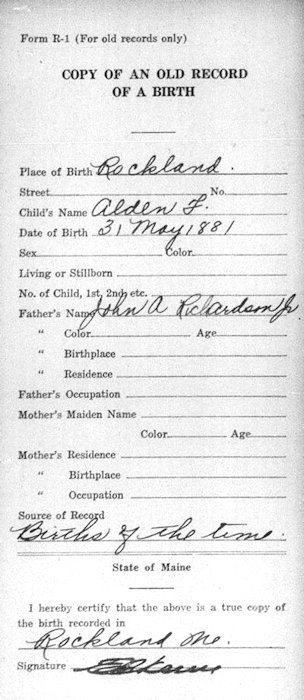 Form R-1 (For old records only)
COPY OF AN OLD RECORD
OF A BIRTH
Place of Birth Rockland.
Street No.
Child's Name Alden F.
Date of Birth 31 May 1881
Sex Color
Living or Stillborn
No. of Child, 1st, 2nd, etc.
Father's Name John A Richardson Jr
" Color Age
" Birthplace
" Residence
Father's Occupation
Mother's Maiden Name
Color Age
Mother's Residence
" Birthplace
" Occupation
Source of Record
Births of the time.
State of Maine
I hereby certify that the above is a true copy of
the birth recorded in
Rockland Me.
Signature